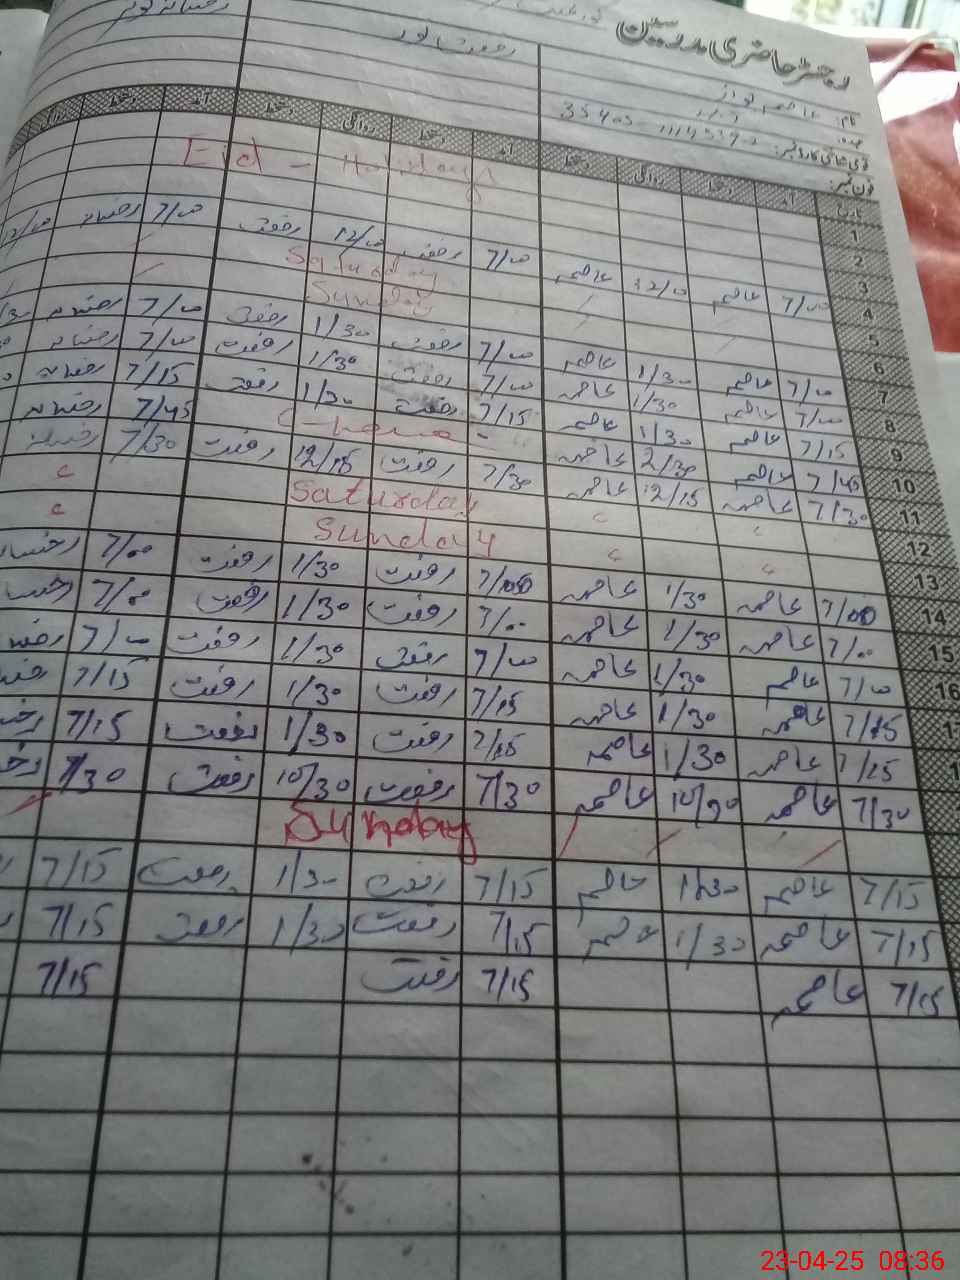 رجسٹر حاضری مدرسین
نام: عاصمہ نواز رفعت نور
عہدہ:
قومی شناختی کارڈ نمبر: 35403
فون نمبر:
تاریخ آمد دستخط روانگی دستخط آمد دستخط روانگی دستخط آمد دستخط روانگی
1
Eid - Holidays
2
3
4 7/00 عاصمہ 12/00 عاصمہ 7/00 رفعت 12/00 رفعت 7/00 رخسانہ
5 Saturday
6 Sunday
7 7/00 عاصمہ 1/30 عاصمہ 7/00 رفعت 1/30 رفعت 7/00 رخسانہ
8 7/00 عاصمہ 1/30 عاصمہ 7/00 رفعت 1/30 رفعت 7/00 رخسانہ
9 7/15 عاصمہ 1/30 عاصمہ 7/15 رفعت 1/30 رفعت 7/15 رخسانہ
10 7/45 عاصمہ 2/30 عاصمہ 7/45 رخسانہ
11 7/30 عاصمہ 12/15 عاصمہ 7/30 رفعت 12/15 رفعت 7/30 رخسانہ
12 Saturday
13 Sunday
14 7/00 عاصمہ 1/30 عاصمہ 7/00 رفعت 1/30 رفعت 7/00
15 7/00 عاصمہ 1/30 عاصمہ 7/00 رفعت 1/30 رفعت 7/00
16 7/00 عاصمہ 1/30 عاصمہ 7/00 رفعت 1/30 رفعت 7/00
7/15 عاصمہ 1/30 عاصمہ 7/15 رفعت 1/30 رفعت 7/15
7/15 عاصمہ 1/30 عاصمہ 7/15 رفعت 1/30 رفعت 7/15
7/30 عاصمہ 10/30 عاصمہ 7/30 رفعت 10/30 رفعت 7/30
Sunday
7/15 عاصمہ 1/30 عاصمہ 7/15 رفعت 1/30 رفعت 7/15
7/15 عاصمہ 1/30 عاصمہ 7/15 رفعت 1/30 رفعت 7/15
7/15 عاصمہ 7/15 رفعت 7/15
23-04-25 08:36